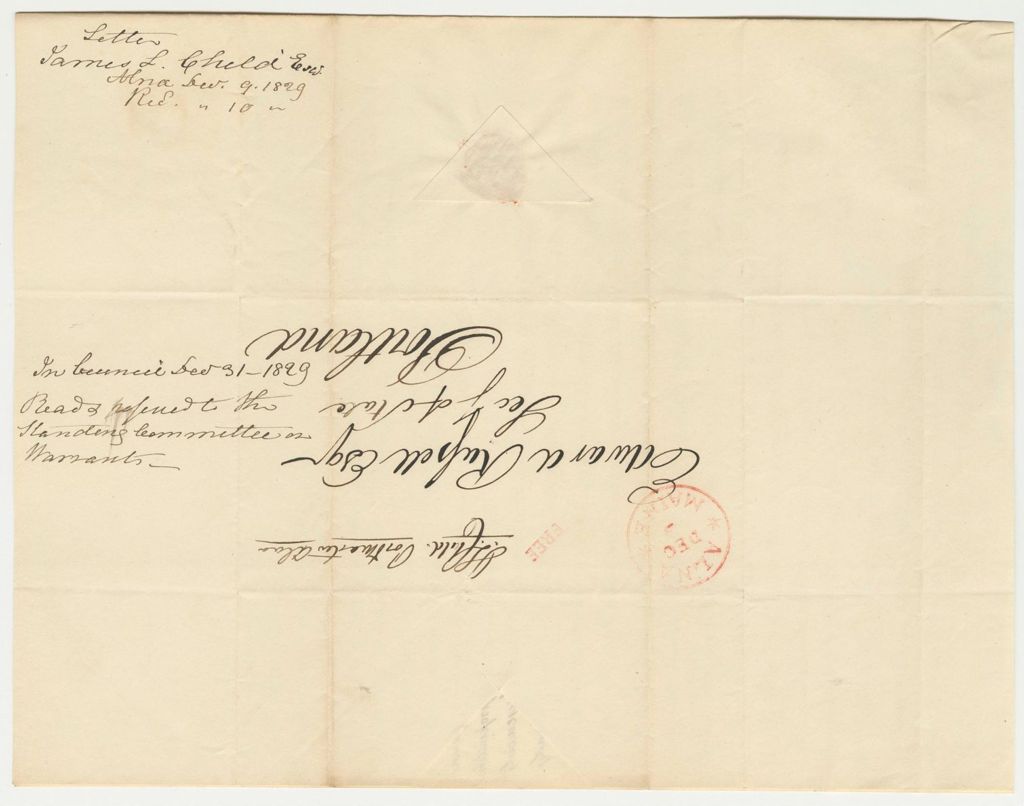 Letter
James L. Child Esq.
Alna Dec. 9. 1829
Rec. " 10 "
In Council Dec 31 - 1829
Read & referred to the
Standing Committee on
Warrants
Child. Postmaster Alna
FREE
ALNA
DEC
MAINE
Edward Russell Esqr
Secy of State
Portland